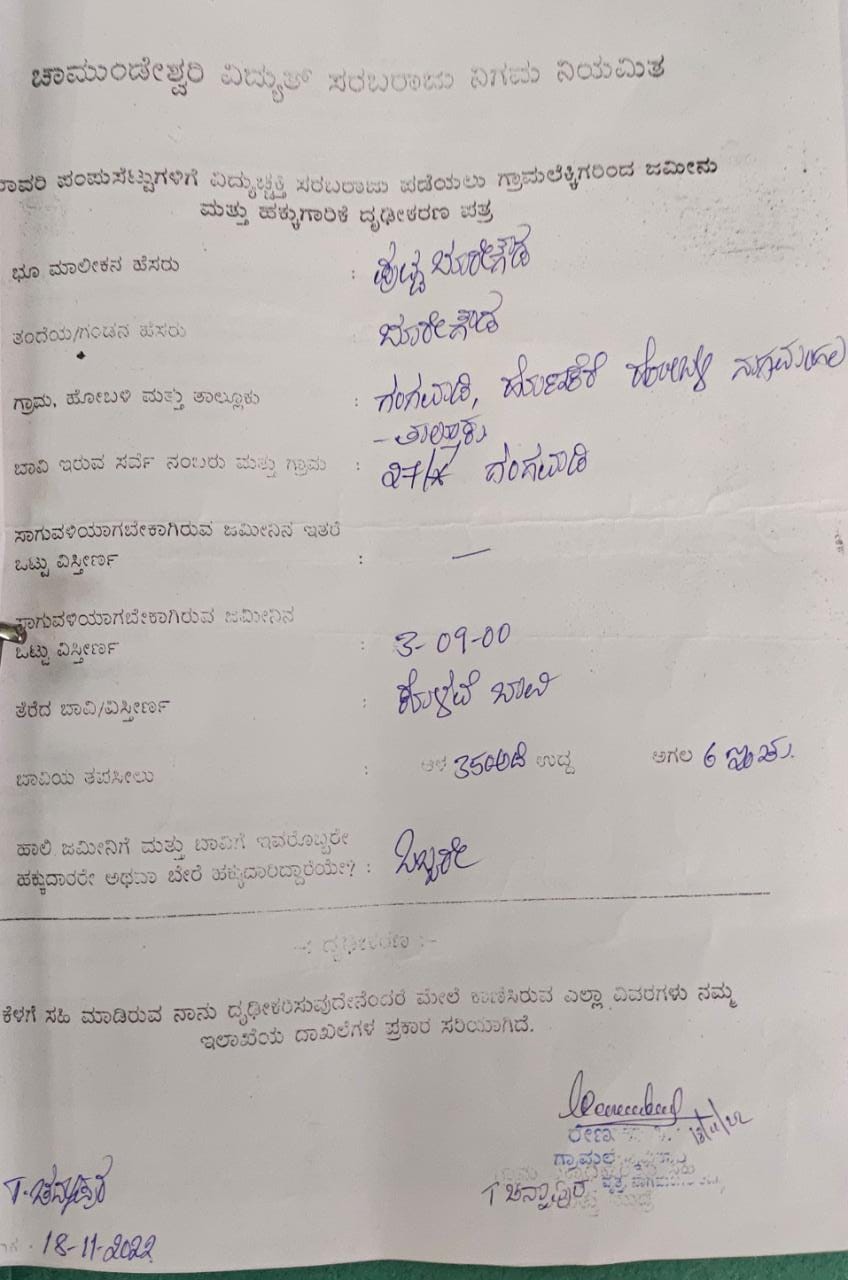 ಚಾಮುಂಡೇಶ್ವರಿ ವಿದ್ಯುತ್ ಸರಬರಾಜು ನಿಗಮ ನಿಯಮಿತ
ಪಂಪುಸೆಟ್ಟುಗಳಿಗೆ ವಿದ್ಯುಚ್ಛಕ್ತಿ ಸರಬರಾಜು ಪಡೆಯಲು ಗ್ರಾಮಲೆಕ್ಕಿಗರಿಂದ ಜಮೀನು
ಮತ್ತು ಹಕ್ಕುಗಾರಿಕೆ ದೃಢೀಕರಣ ಪತ್ರ
ಭೂ ಮಾಲೀಕನ ಹೆಸರು : ಪುಟ್ಟಬೋರೇಗೌಡ
ತಂದೆಯ/ಗಂಡನ ಹೆಸರು : ಬೋರೇಗೌಡ
ಗ್ರಾಮ, ಹೋಬಳಿ ಮತ್ತು ತಾಲ್ಲೂಕು : ಗಂಗವಾಡಿ, ಹೊಣಕೆರೆ ಹೋಬಳಿ ನಾಗಮಂಗಲ
- ತಾಲ್ಲೂಕು
ಬಾವಿ ಇರುವ ಸರ್ವೆ ನಂಬರು ಮತ್ತು ಗ್ರಾಮ : ಗಂಗವಾಡಿ
ಸಾಗುವಳಿಯಾಗಬೇಕಾಗಿರುವ ಜಮೀನಿನ ಇತರೆ
ಒಟ್ಟು ವಿಸ್ತೀರ್ಣ : —
ಸಾಗುವಳಿಯಾಗಬೇಕಾಗಿರುವ ಜಮೀನಿನ
ಒಟ್ಟು ವಿಸ್ತೀರ್ಣ : 3-09-00
ತೆರೆದ ಬಾವಿ/ವಿಸ್ತೀರ್ಣ : ಕೊಳವೆ ಬಾವಿ
ಬಾವಿಯ ತಪಸೀಲು : ಆಳ 350ಅಡಿ ಉದ್ದ ಅಗಲ 6 ಇಂಚು.
ಹಾಲಿ ಜಮೀನಿಗೆ ಮತ್ತು ಬಾವಿಗೆ ಇವರೊಬ್ಬರೇ
ಹಕ್ಕುದಾರರೇ ಅಥವಾ ಬೇರೆ ಹಕ್ಕುದಾರಿದ್ದಾರೆಯೇ? : ಒಬ್ಬರೇ
-: ದೃಢೀಕರಣ :-
ಕೆಳಗೆ ಸಹಿ ಮಾಡಿರುವ ನಾನು ದೃಢೀಕರಿಸುವುದೇನೆಂದರೆ ಮೇಲೆ ಕಾಣಿಸಿರುವ ಎಲ್ಲಾ ವಿವರಗಳು ನಮ್ಮ
ಇಲಾಖೆಯ ದಾಖಲೆಗಳ ಪ್ರಕಾರ ಸರಿಯಾಗಿದೆ.
18/11/22
T ಚನ್ನಾಪುರ ವೃತ್ತ
T. ಚನ್ನಾಪುರ
18-11-2022